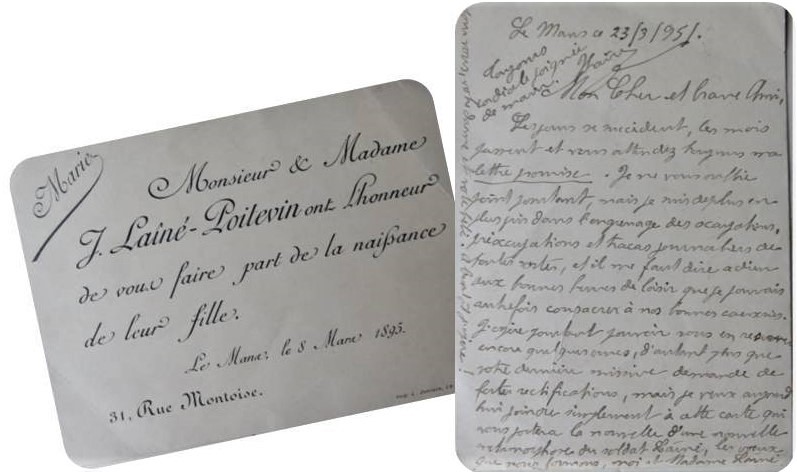 Marie
Monsieur & Madame
J. Laîné-Poitevin ont l'honneur
de vous faire part de la naissance
de leur fille.
Le Mans, le 8 Mars 1895.
31, Rue Montoise.
Le Mans ce 23/3/95.
toujours
cordiale poignée
de main.
Mon Cher et brave Ami,
Les jours se succèdent, les mois
passent et vous attendez toujours ma
lettre promise. Je ne vous oublie
point pourtant, mais je suis de plus en
plus pris dans l'engrenage des occupations,
préoccupations et tracas journaliers de
toutes sortes, et il me faut dire adieu
aux bonnes heures de loisir que je pouvais
autrefois consacrer à nos bonnes causeries.
J'espère pourtant pouvoir vous en réserver
encore quelques unes, d'autant plus que
votre dernière missive demande de
fortes rectifications, mais je veux aujourd
hui joindre simplement à cette carte qui
vous portera la nouvelle d'une nouvelle
métamorphose du soldat Laîné, les vœux
que nous formons, moi et Madame Laîné